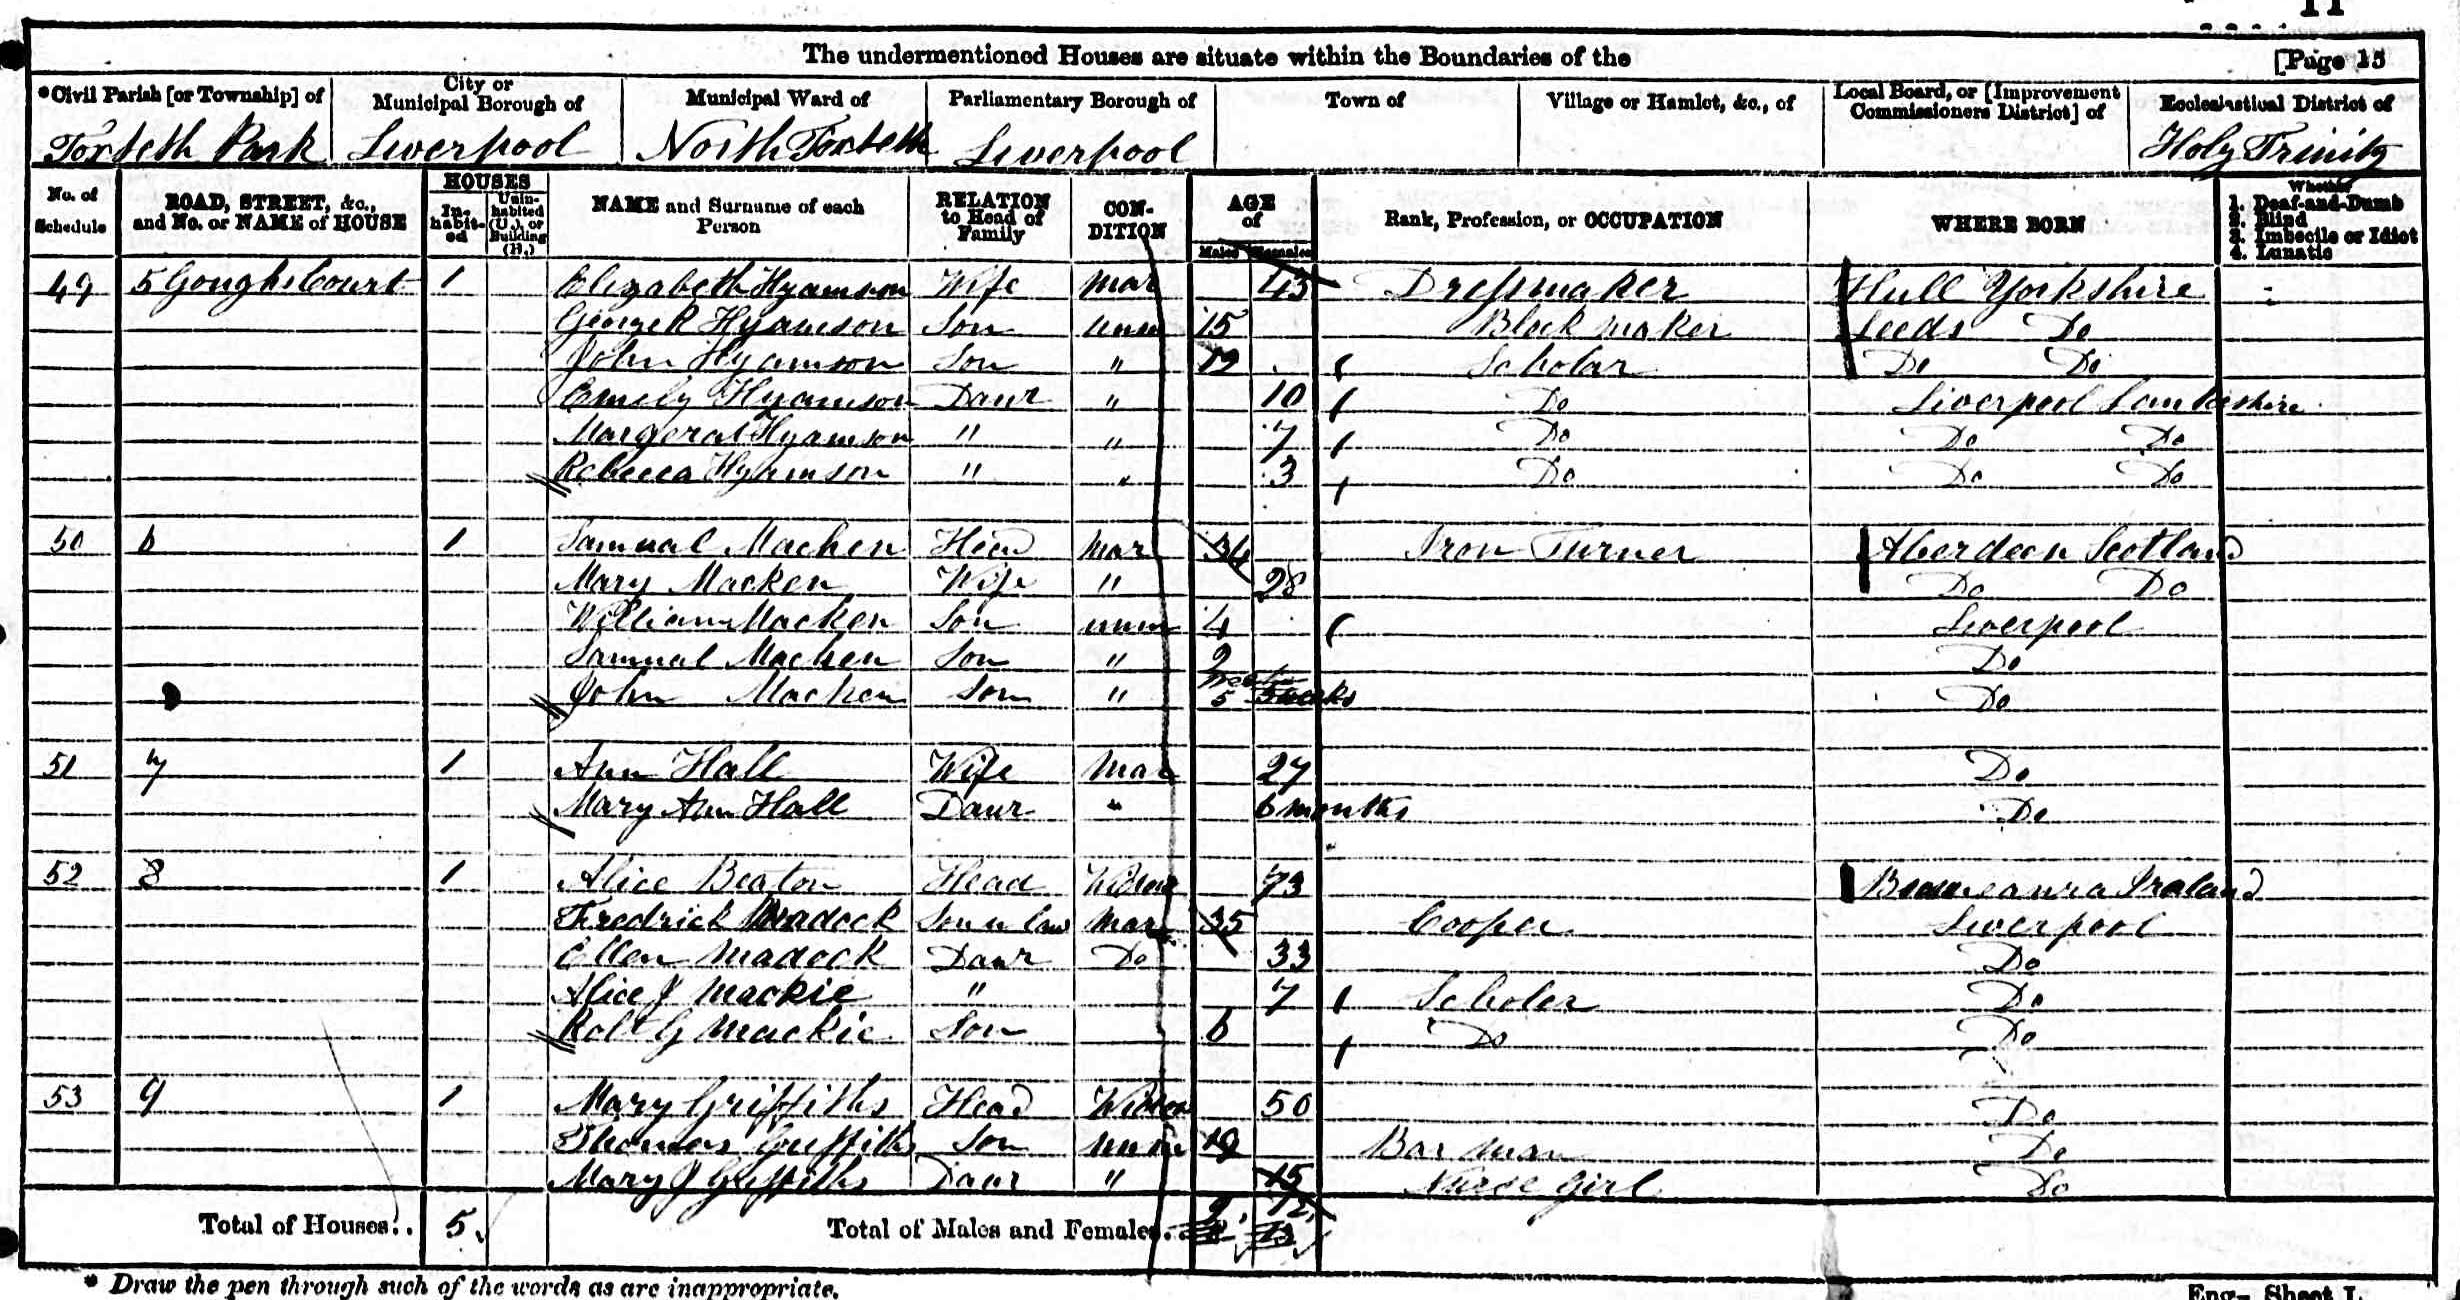 The undermentioned Houses are situate within the Boundaries of the [Page 15
*Civil Parish [or Township] of City or Municipal Borough of Municipal Ward of Parliamentary Borough of Town of Village or Hamlet, &c., of Local Board, or [Improvement Commissioners District] of Ecclesiastical District of
Toxteth Park Liverpool North Toxteth Liverpool Holy Trinity
No. of Schedule ROAD, STREET, &c., and No. or NAME of HOUSE HOUSES In-habit-ed Unin-habited (U.), or Building (B.) NAME and Surname of each Person RELATION to Head of Family CON-DITION AGE of Males Females Rank, Profession, or OCCUPATION WHERE BORN Whether 1. Deaf-and-Dumb 2. Blind 3. Imbecile or Idiot 4. Lunatic
49 5 Goughs Court 1 Elizabeth Hyamson Wife Mar 43 Dressmaker Hull Yorkshire
George R Hyamson Son Unm 15 Block maker Leeds Do
John Hyamson Son " Scholar Do Do
Emily Hyamson Daur " 10 Do Liverpool Lankeshire
Margerat Hyamson " " 7 Do Do Do
Rebecca Hyamson " " 3 Do Do Do
50 6 1 Samual Macken Head Mar 34 Iron Turner Aberdeen Scotland
Mary Macken Wife " 28 Do Do
William Macken Son unm 4 Liverpool
Samual Macken Son " 2 Do
John Macken Son " 5 weeks Do
51 7 1 Ann Hall Wife Mar 27 Do
Mary Ann Hall Daur " 6 months Do
52 8 1 Alice Beaton Head Widow 73 Ireland
Fredrick Madock Son in law Mar 35 Cooper Liverpool
Ellen Madock Daur Do 33 Do
Alice J Mackie " 7 Scholar Do
Robt G Mackie Son 6 Do Do
53 9 1 Mary Griffiths Head Widow 50 Do
Thomas Griffiths Son Unm 19 Bar man Do
Mary J Griffiths Daur " 15 Nurse Girl Do
Total of Houses.. 5 Total of Males and Females.. 9 12
* Draw the pen through such of the words as are inappropriate.
Eng- Sheet L